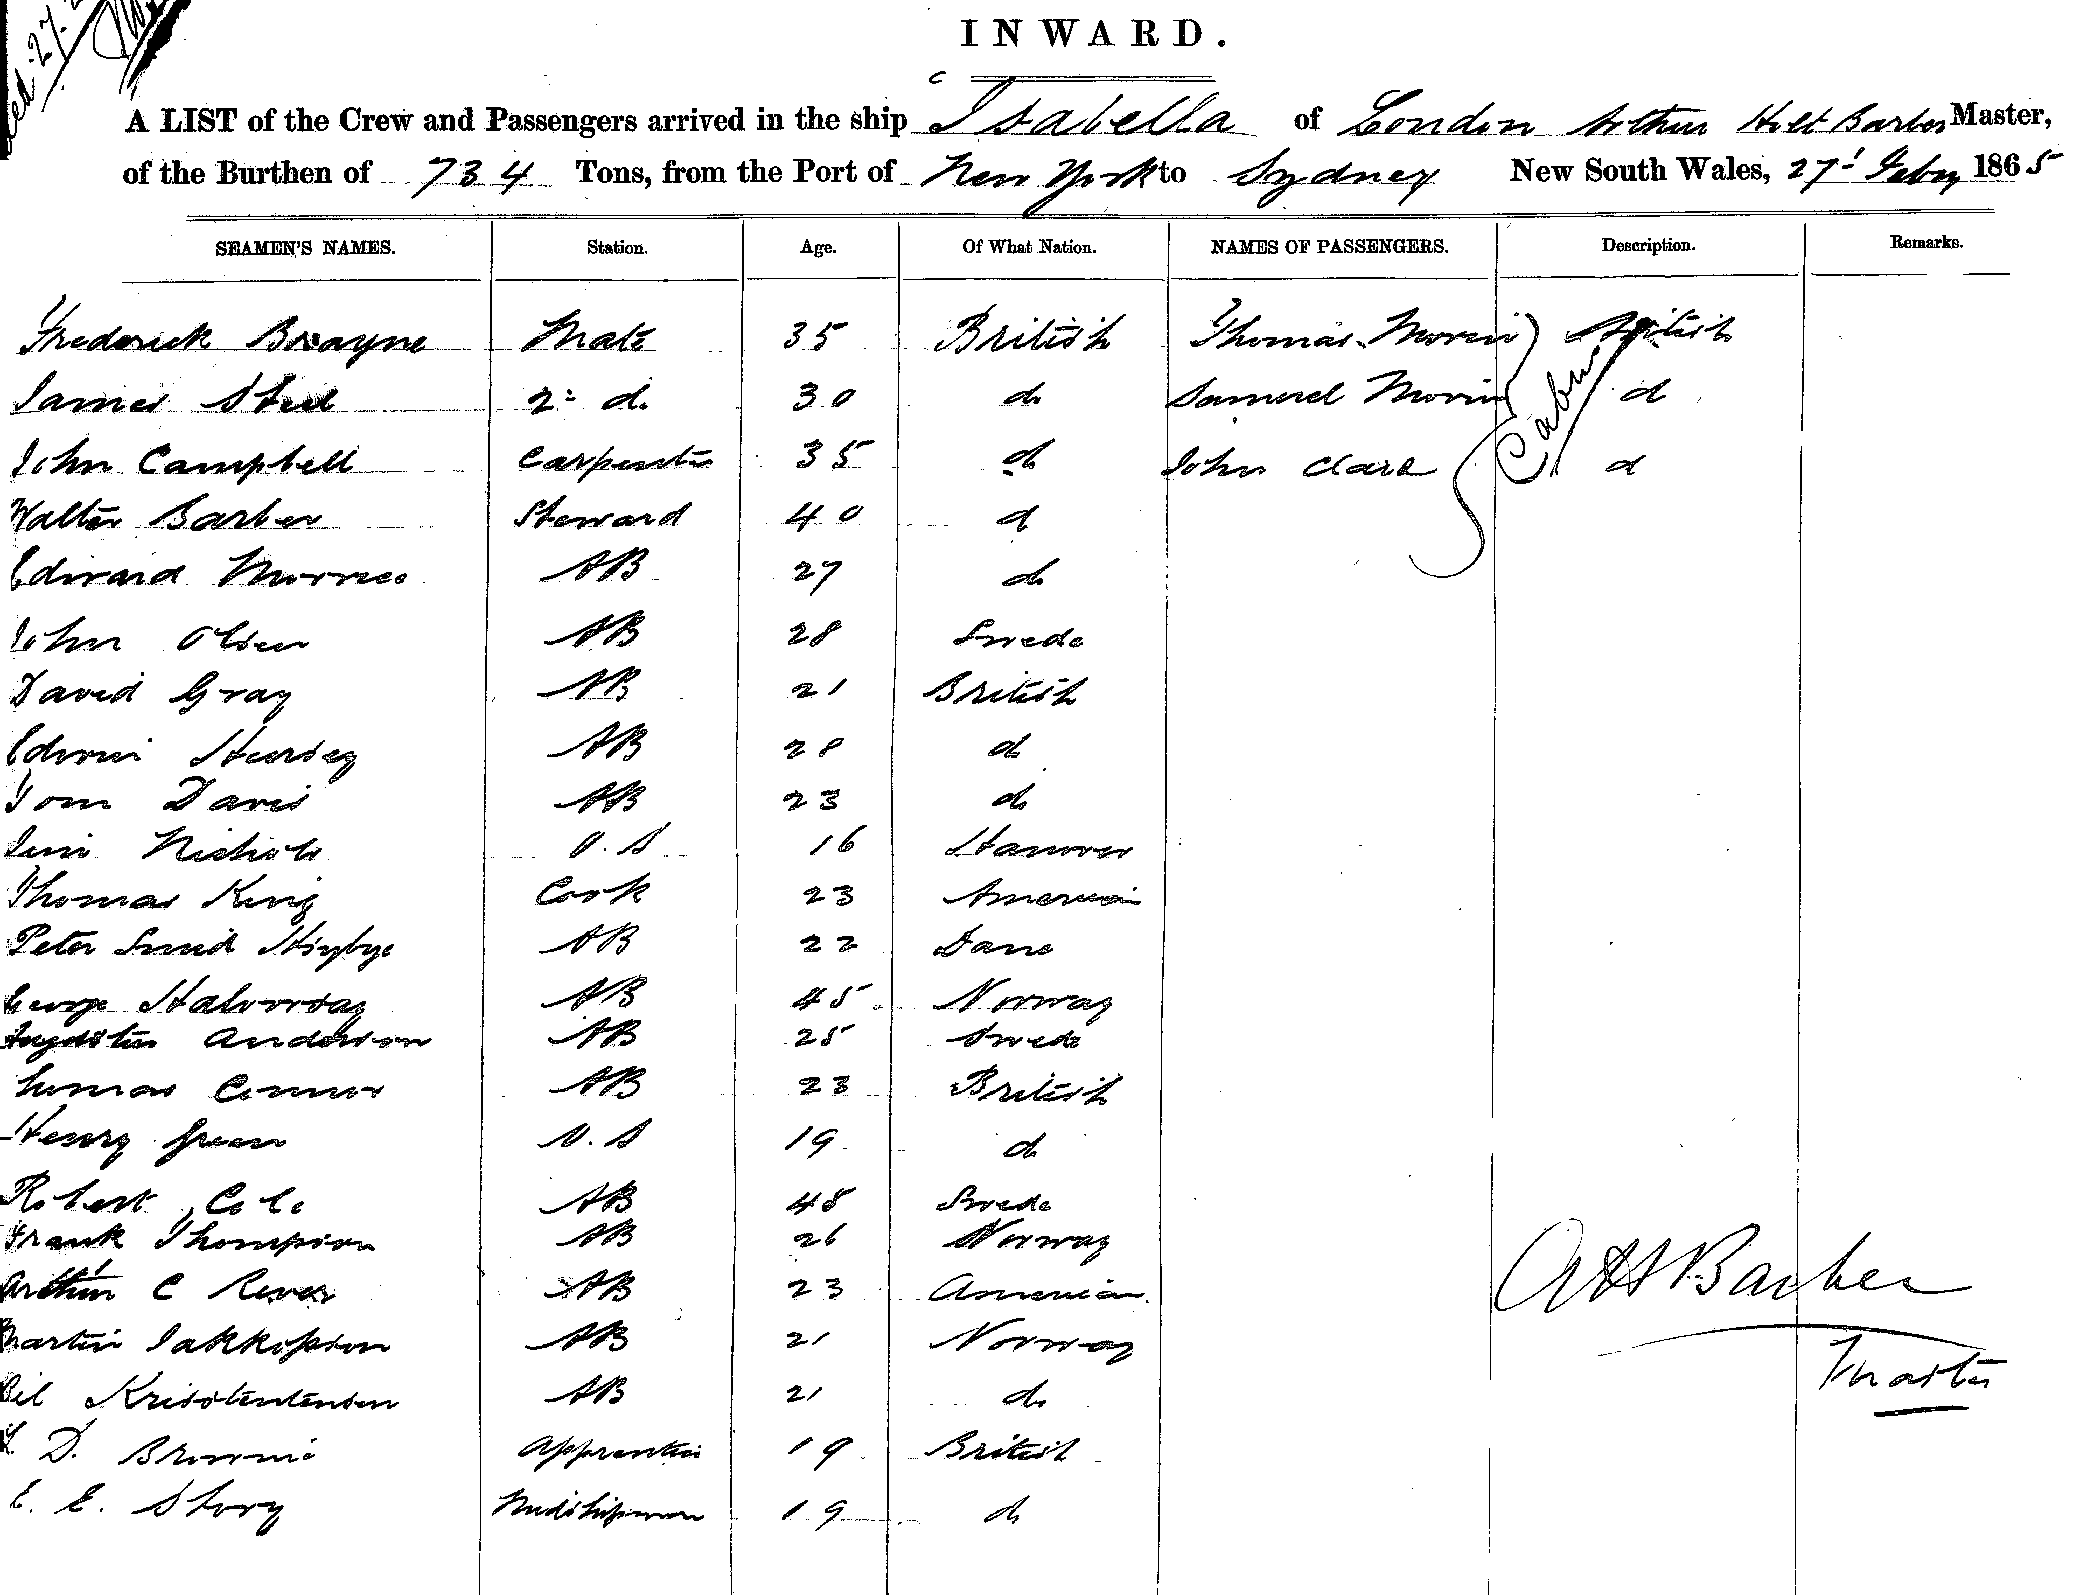 INWARD.
A LIST of the Crew and Passengers arrived in the ship Isabella of London Arthur Holt Barber Master,
of the Burthen of 734 Tons, from the Port of New York to Sydney New South Wales, 27' Feby 1865
SEAMEN'S NAMES. Station. Age. Of What Nation. NAMES OF PASSENGERS. Description. Remarks.
Frederick Brayne Mate 35 British Thomas Morin British
James Steel 2 d. 30 do Samuel Morin d
John Campbell Carpenter 35 do John Clark Cabin d
Walter Barber Steward 40 d
Edward Morris AB 27 do
John Olsen AB 28 Swede
David Gray AB 21 British
Edwin Hersey AB 28 d
Tom Davis AB 23 do
Nichols O.S 16 Hanover
Thomas King Cook 23 American
Peter AB 22 Dane
George AB 45 Norway
Anderson AB 25 Swede
Thomas Connor AB 23 British
Henry Green O.S 19 do
Robert Cole AB 48 Swede
Frank Thompson AB 26 Norway
Arthur C AB 23 American
Martin AB 21 Norway
AB 21 do
D. Browne Apprentice 19 British
E. E. Story Midshipman 19 do
AH Barber
Master